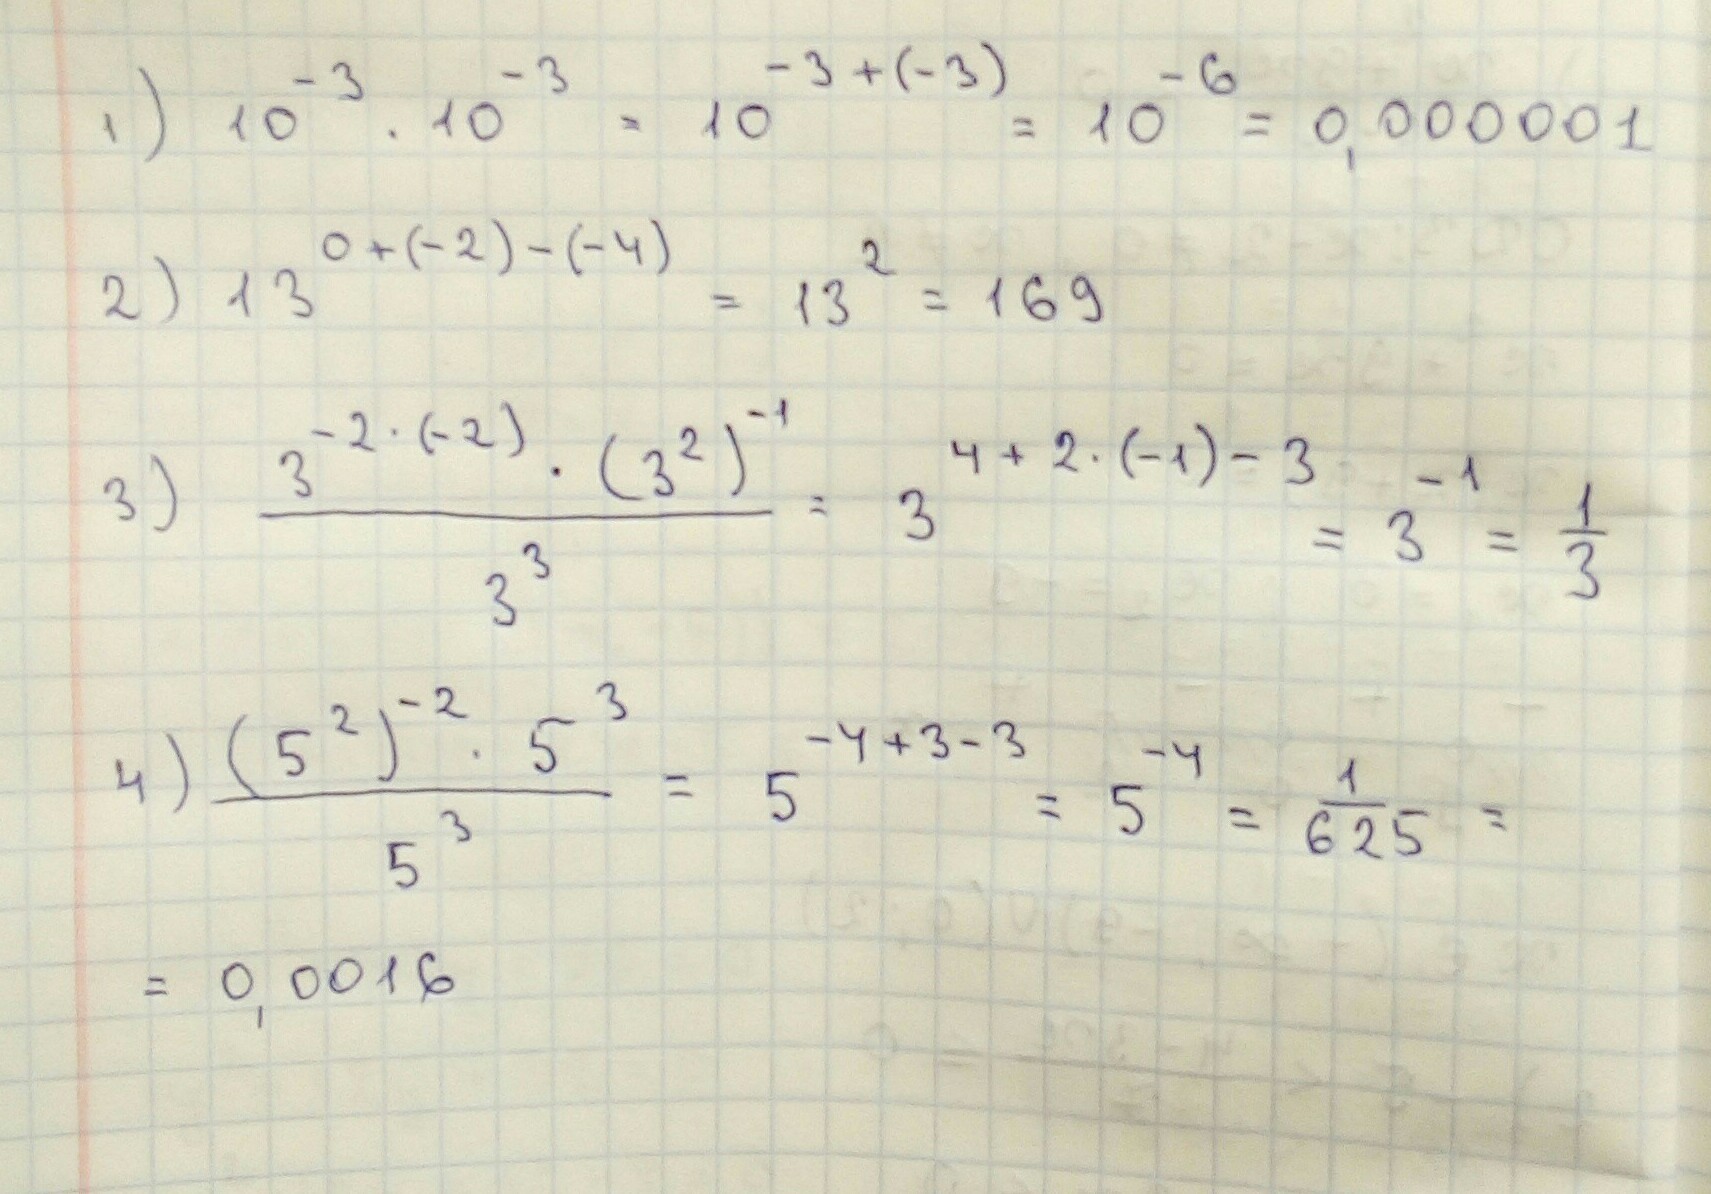 1) 10^{-3} · 10^{-3} = 10^{-3+(-3)} = 10^{-6} = 0,000001
2) 13^{0+(-2)-(-4)} = 13^{2} = 169
3) \frac{3^{-2·(-2)} · (3^{2})^{-1}}{3^{3}} = 3^{4+2·(-1)-3} = 3^{-1} = \frac{1}{3}
4) \frac{(5^{2})^{-2} · 5^{3}}{5^{3}} = 5^{-4+3-3} = 5^{-4} = \frac{1}{625} =
= 0,0016